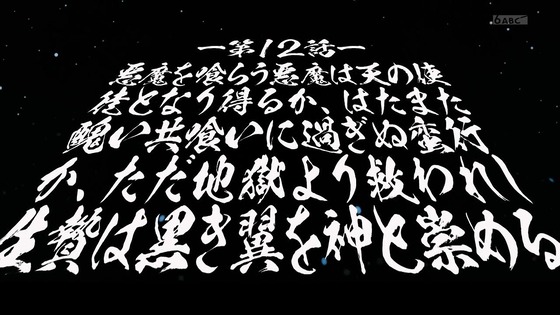 6 ABC
一第12話一
悪魔を喰らう悪魔は天の使
徒となり得るか、はたまた
醜い共喰いに過ぎぬ蛮行
か、ただ地獄より救われし
生贄は黒き翼を神と崇める